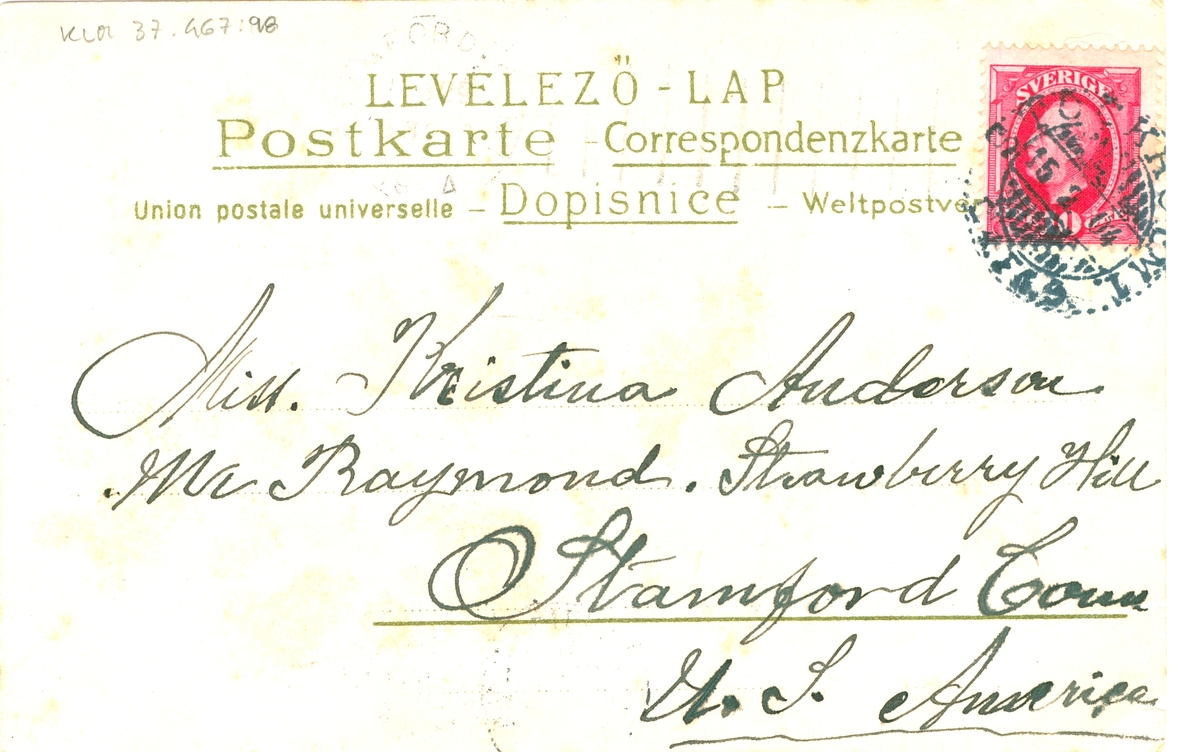 KLM 37.467:98
LEVELEZŐ - LAP
Postkarte - Correspondenzkarte
Union postale universelle - Dopisnice - Weltpostver
SVERIGE
Miss. Kristina Anderson
Mc Raymond. Strawberry Hill
Stamford Conn
U. S. America